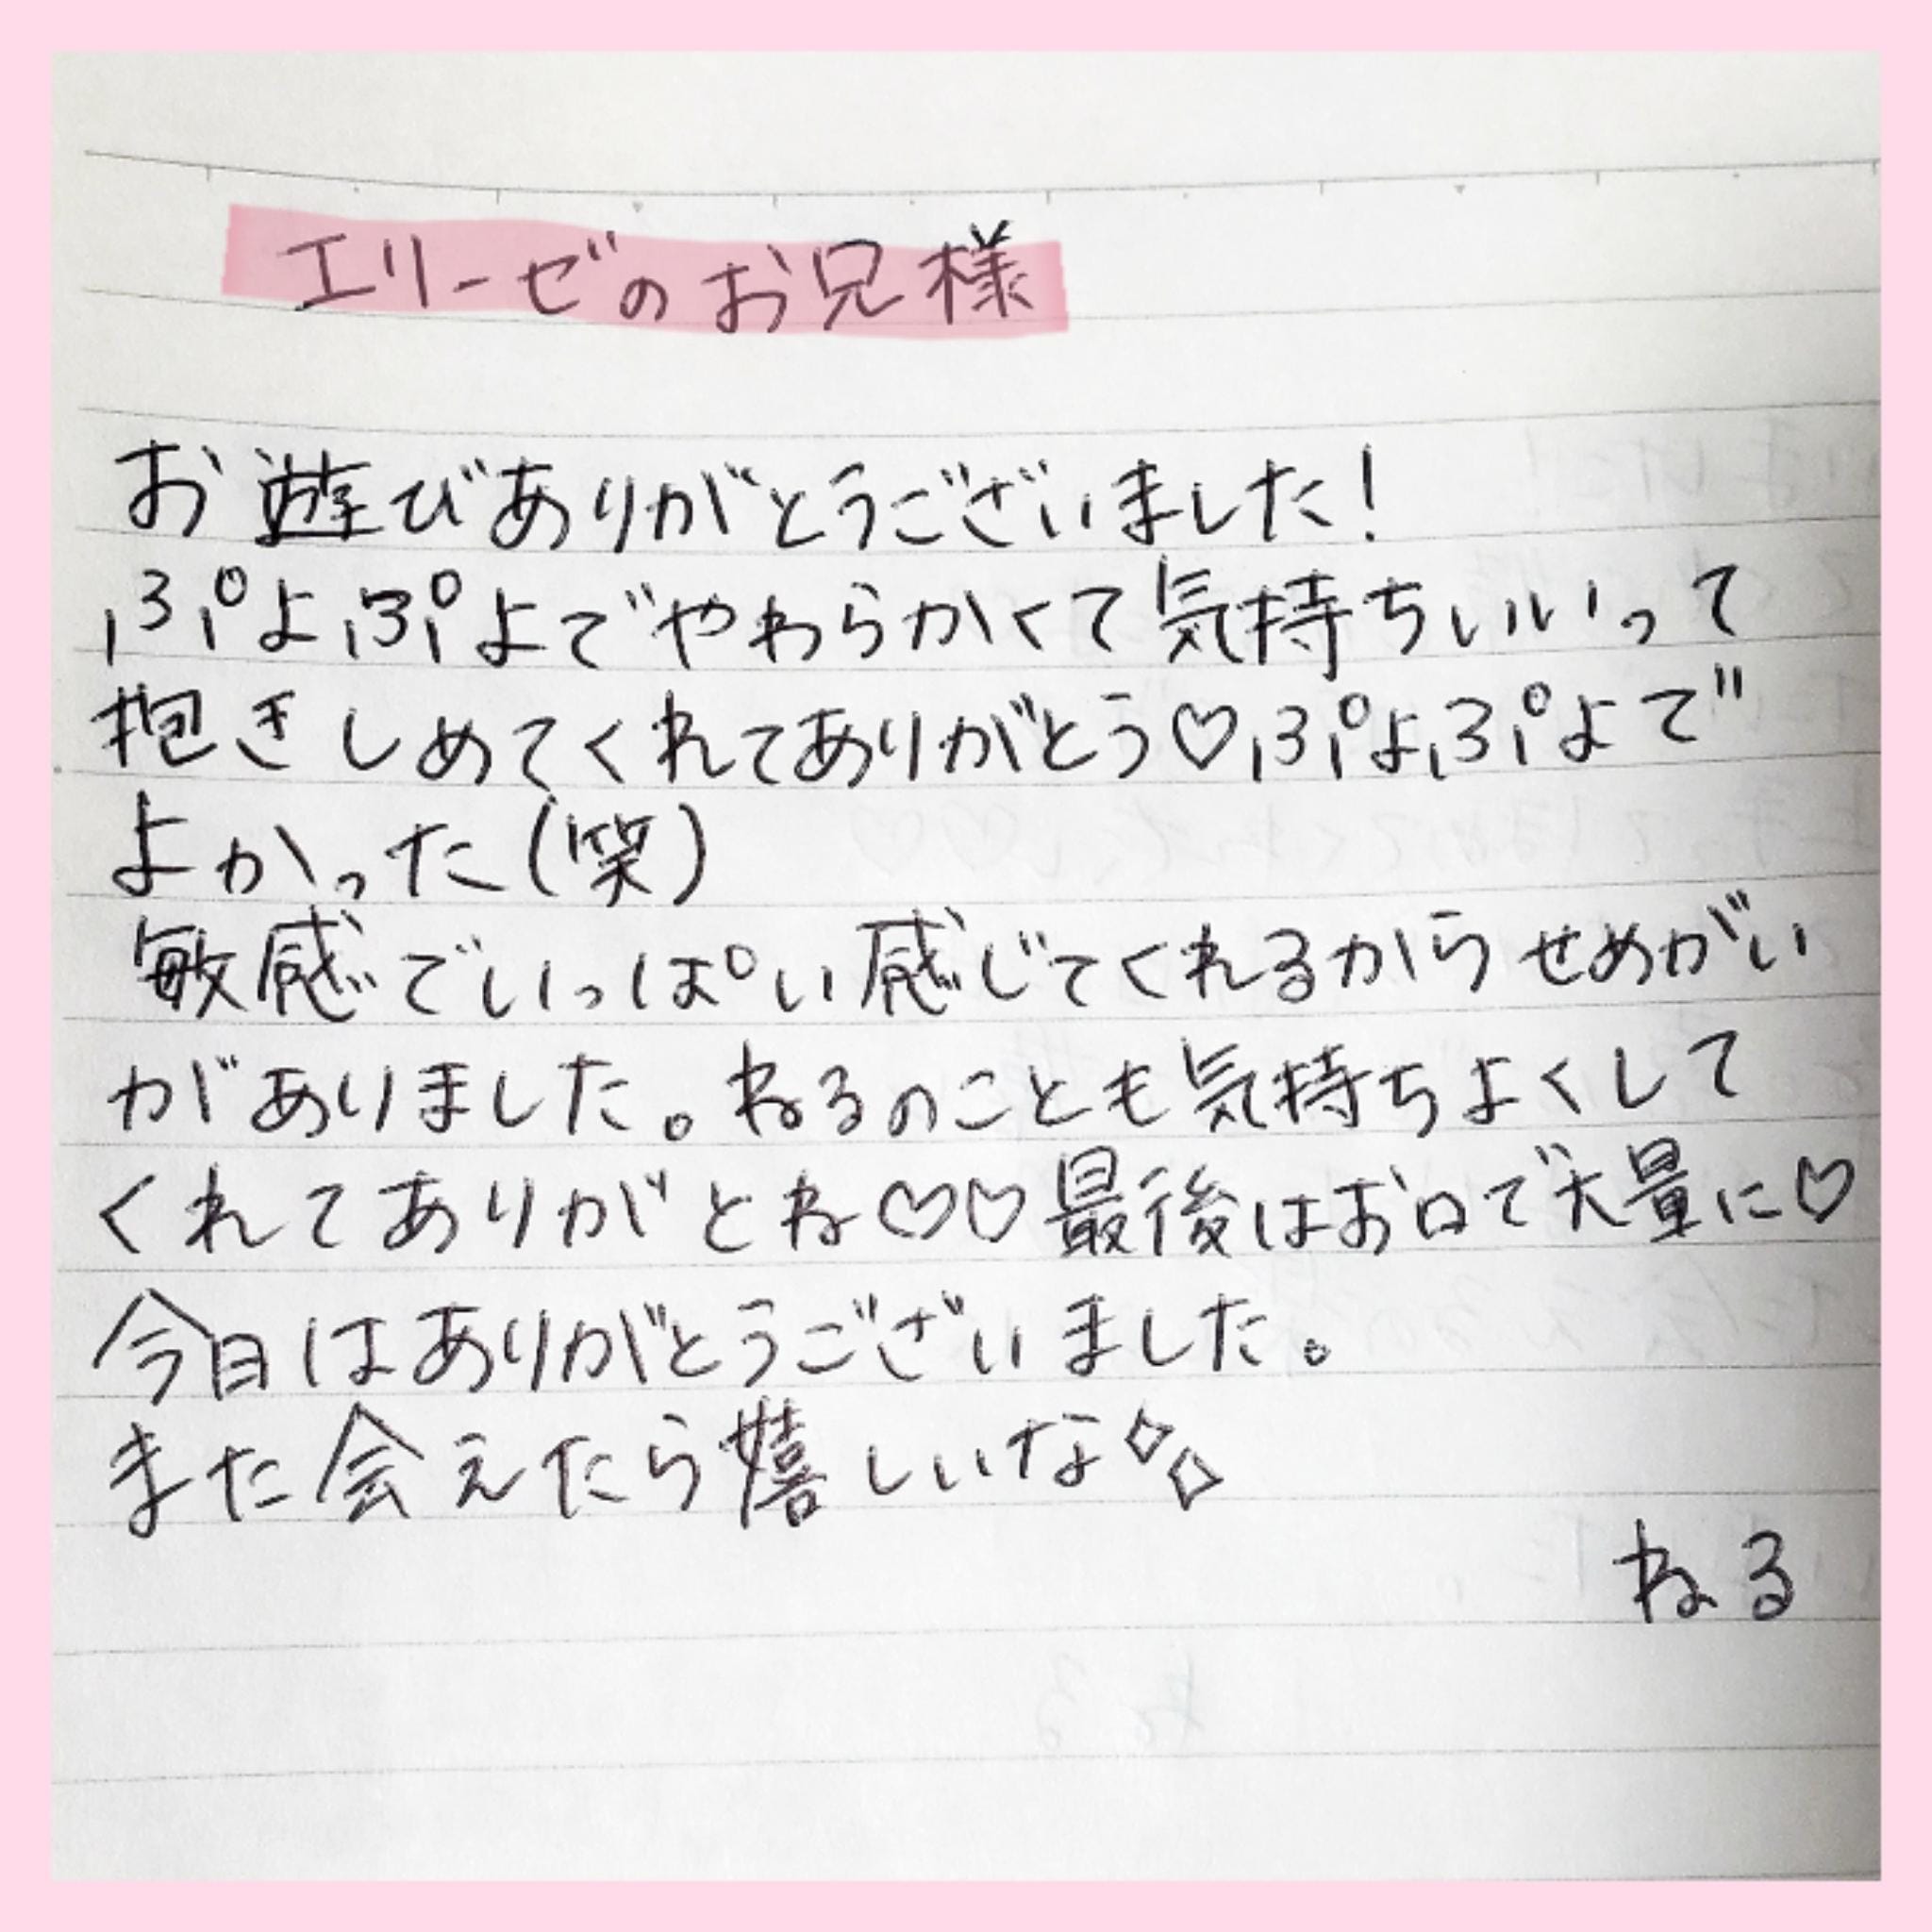 エリーゼのお兄様
お遊びありがとうございました!
ぷよぷよでやわらかくて気持ちいいって
抱きしめてくれてありがとう♡ぷよぷよで
よかった(笑)
敏感でいっぱい感じてくれるからせめがい
がありました。ねるのことも気持ちよくして
くれてありがとね♡♡最後はお口で大量に♡
今日はありがとうございました。
また会えたら嬉しいな
ねる